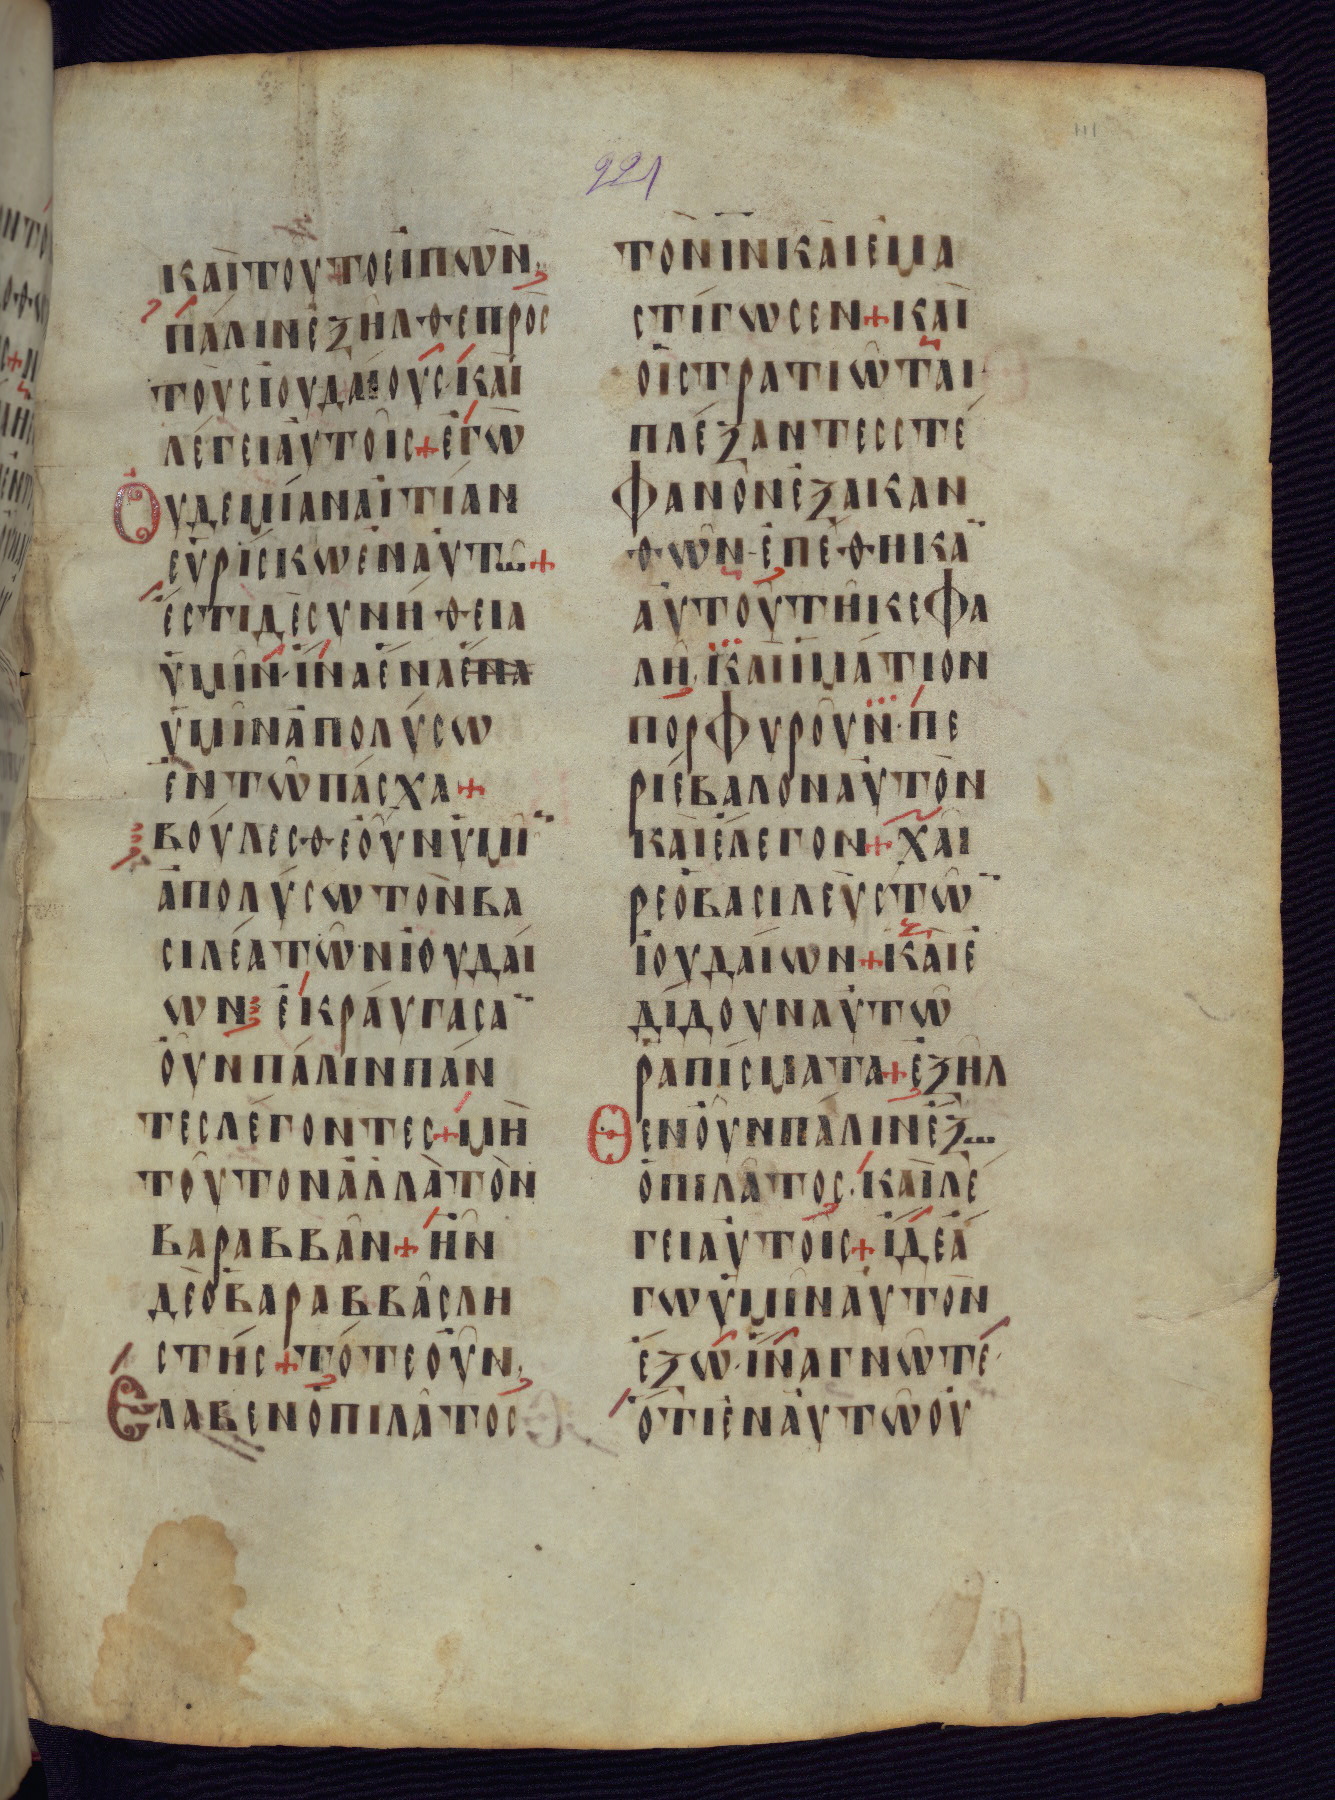 221
ΚΑῚΤΟΥΤΟΕἸΠῺΝ
ΠΆΛΙΝἘΞΗ͂ΛΘΕΠΡῸΣ
ΤΟῪΣἸΟΥΔΑΊΟΥΣ·ΚΑῚ
ΛΈΓΕΙΑΥΤΟΙ͂Σ+ἘΓῺ
ΟΥΔΕΜΊΑΝΑἸΤΊΑΝ
ΕΥΡΊΣΚΩΕΝΑΥΤΩ+
ἜΣΤΙΔῈΣΥΝΉΘΕΙΑ
ὙΜΙ͂Ν·ἽΝΑἝΝΑἝΝΑ
ὙΜΙ͂ΝἈΠΟΛΎΣΩ
ΕΝΤΩ͂ΠΆΣΧΑ+
ΒΟΎΛΕΣΘΕΟΥ͂ΝΥΜΙ͂
ἈΠΟΛΎΣΩΤῸΝΒΑ
ΣΙΛΈΑΤΩ͂ΝἸΟΥΔΑΊ
ΩΝ ἘΚΡΑΎΓΑΣΑ
ΟΥ͂ΝΠΆΛΙΝΠΆΝ
ΤΕΣΛΈΓΟΝΤΕΣ+ΜῊ
ΤΟΥ͂ΤΟΝἈΛΛᾺΤῸΝ
ΒΑΡΑΒΒΑ͂Ν+ἮΝ
ΔῈὉΒΑΡΑΒΒΑ͂ΣΛΗ
ΣΤΉΣ+ΤΌΤΕΟΥ͂Ν
ΕΛΑΒΕΝὉΠΙΛΑ͂ΤΟΣ
ΤῸΝΙ̅Ν̅ΚΑῚἘΜΑ
ΣΤΊΓΩΣΕΝ+ΚΑῚ
ΟἹΣΤΡΑΤΙΩ͂ΤΑΙ
ΠΛΈΞΑΝΤΕΣΣΤΈ
ΦΑΝΟΝἘΞΑΚΑΝ
ΘΩ͂Ν·ἘΠΈΘΗΚΑ
ΑΥΤΟΥ͂ΤΗ͂ΚΕΦΑ
ΛΗ͂·ΚΑῚἹΜΆΤΙΟΝ
ΠΟΡΦΥΡΟΥ͂Ν·ΠΕ
ΡΙΈΒΑΛΟΝΑΥΤῸΝ
ΚΑῚἜΛΕΓΟΝ+ΧΑΙ͂
ΡΕὉΒΑΣΙΛΕῪΣΤΩ͂
ἸΟΥΔΑΊΩΝ+ΚΑῚἘ
ΔΊΔΟΥΝΑΥΤΩ͂
ῬΑΠΊΣΜΑΤΑ+ἘΞΗ͂Λ
ΘΕΝΟΥ͂ΝΠΆΛΙΝἜΞ
ὉΠΙΛΑ͂ΤΟΣ·ΚΑῚΛΈ
ΓΕΙΑΥΤΟΙ͂Σ+ἼΔΕἌ
ΓΩΥΜΙ͂ΝΑΥΤῸΝ
ἜΞΩ·ἽΝΑΓΝΩ͂ΤΕ·
ὍΤΙἘΝΑΥΤΩ͂ΟΥ